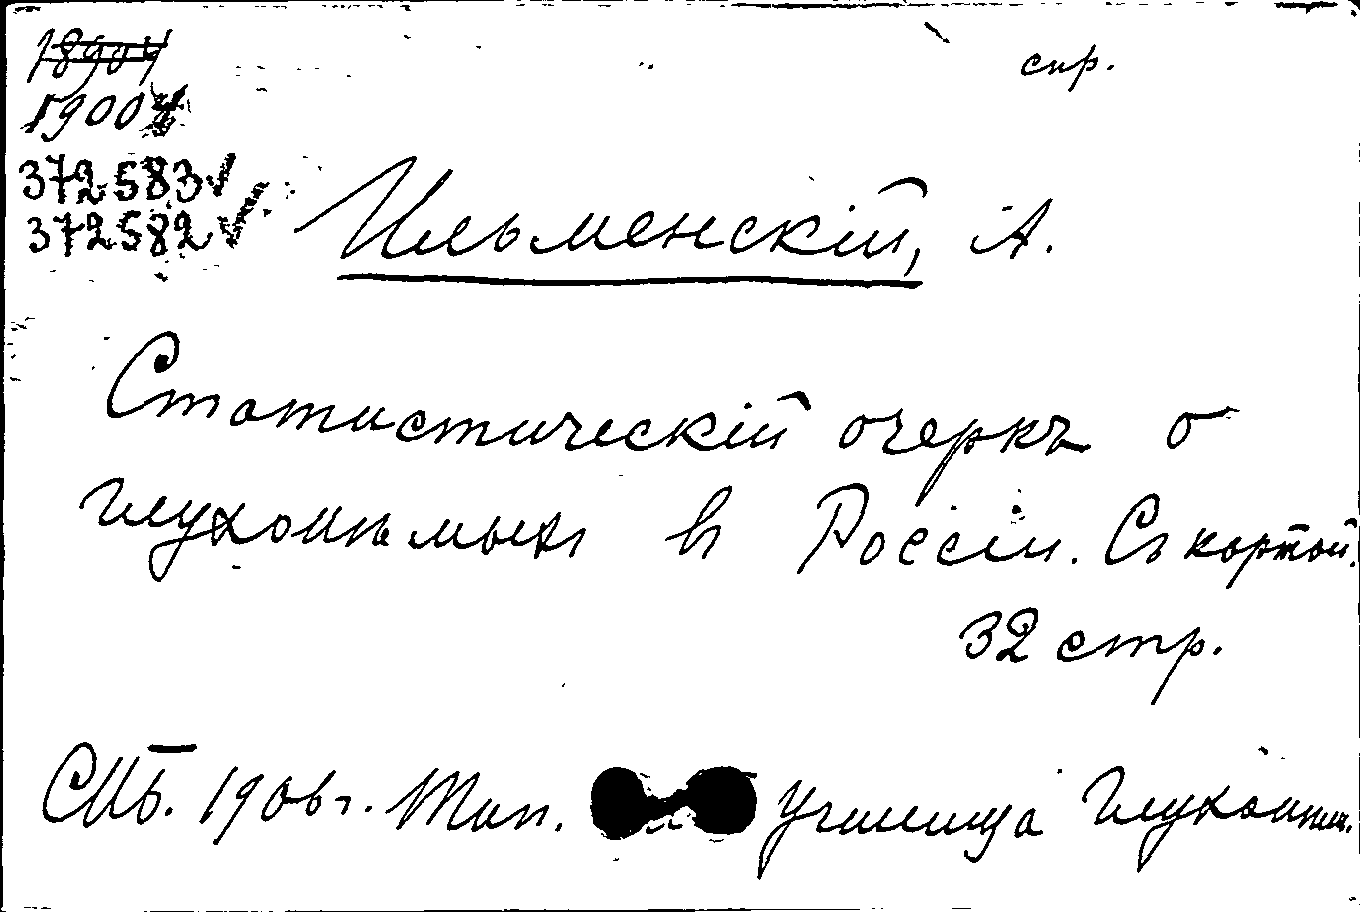 18904
спр.
372583√
372582√
Ильменскій, А.
Статистическій очеркъ о
глухонѣмыхъ въ Россіи. Съ картой.
32 стр.
СПБ. 1906 г. Тип. Училища Глухонѣм.